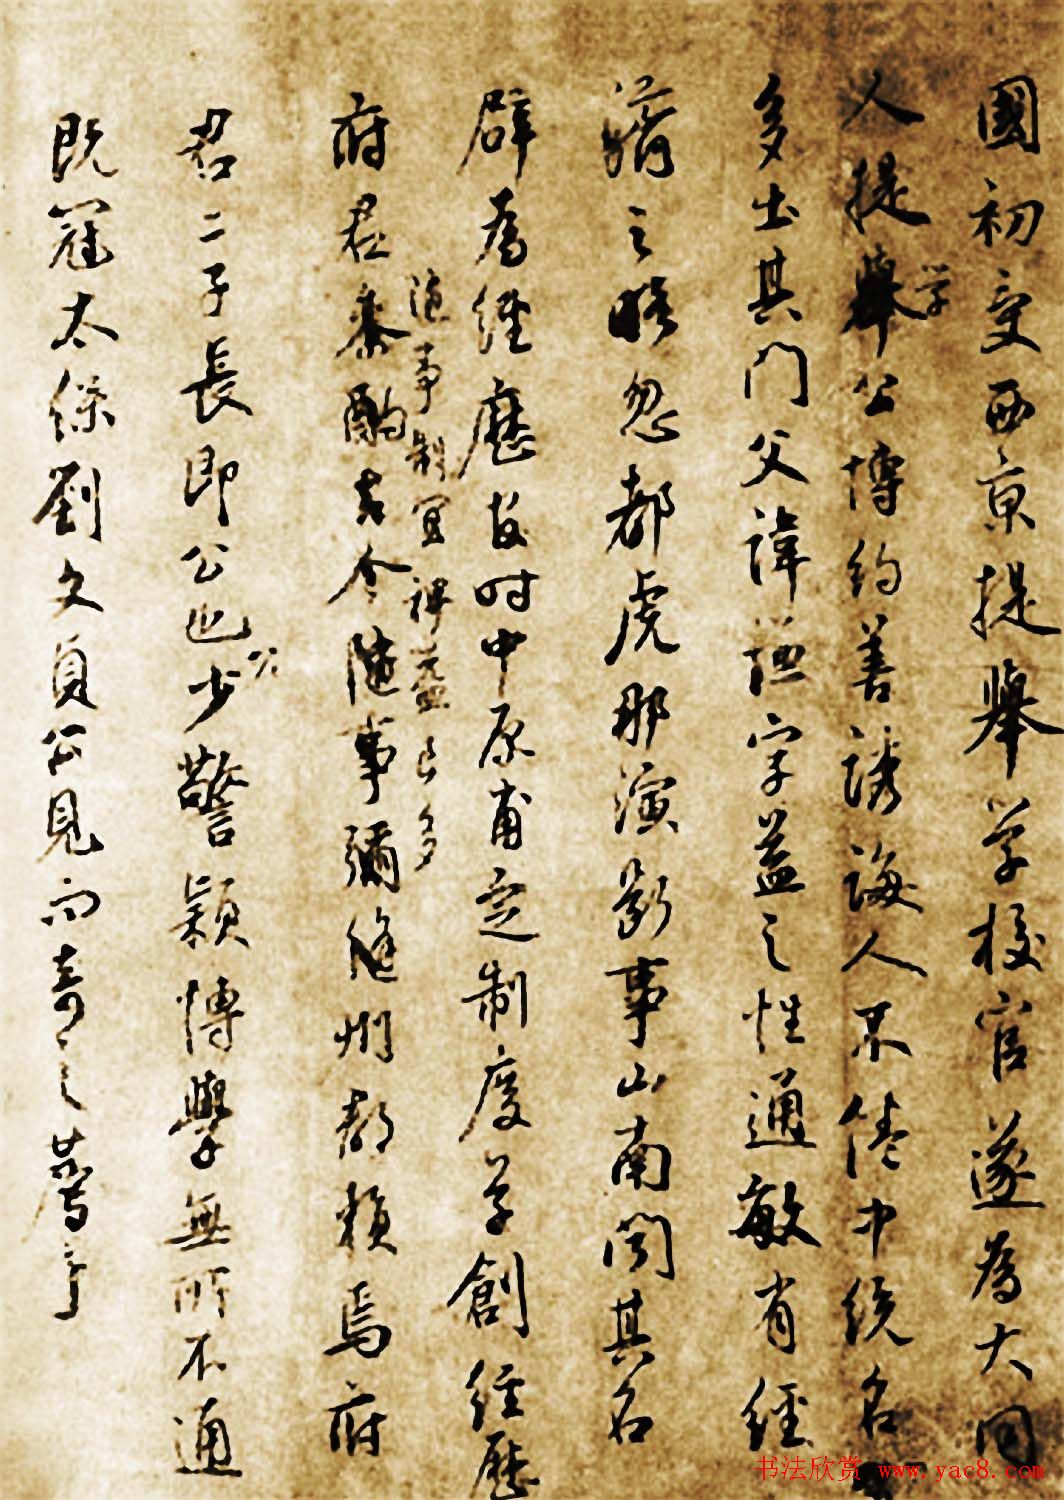 國初受西京提舉學校官遂為大同
人提學舉公博約善誘誨人不倦中統名
多出其門父諱謙字益之性通敏有經
濟之略忽都虎那演斷事山南聞其名
辟為經歷故时中原甫定制度草創經歷
府君參酌古今隨事彌縫州郡賴焉府
隨事制宜裨益良多
君二子長即公也公少警穎博學無所不通
既冠太保劉文貞公見而奇之薦于
书法欣赏 www.yac8.com